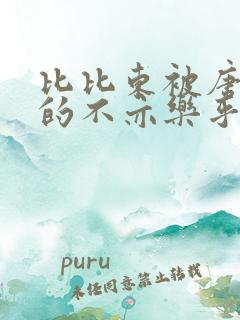 比比东被唐
的不亦乐乎
puru
未经同意禁止转载